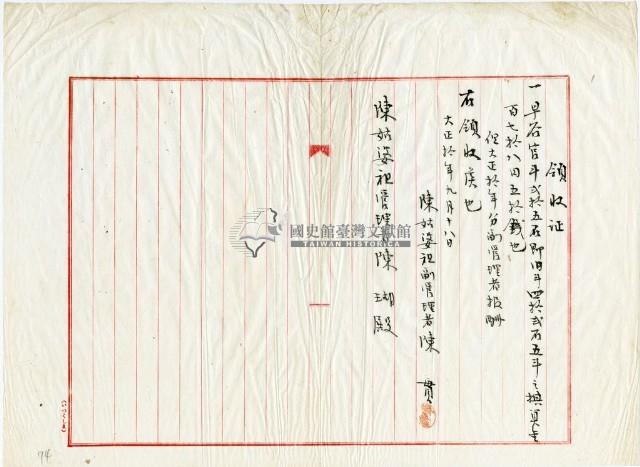 領収证
一早谷官斗弍拾五石即旧斗四拾弍石五斗之換算金
百七拾八円五拾銭也
但大正拾年分副管理者報酬
右領収候也
大正拾年九月十八日
陳姑婆祀副管理者陳 貫
陳姑婆祀管理者陳 瑚殿
國史館臺灣文獻館
TAIWAN HISTORICA
74